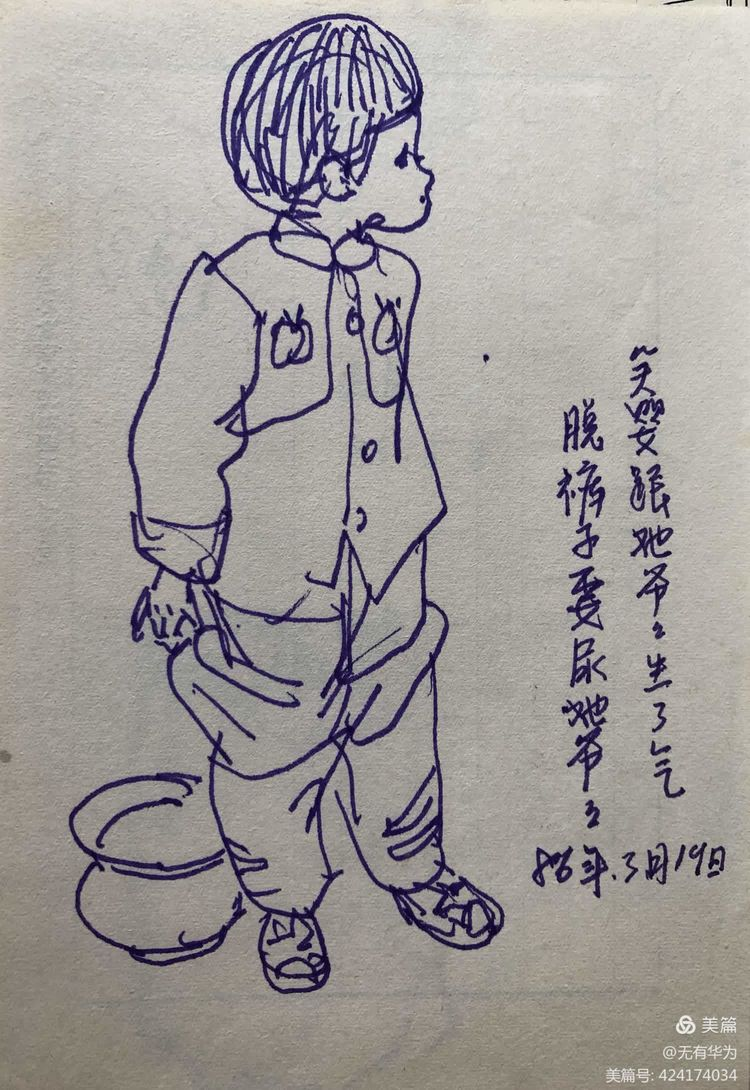 笑婴跟她爷々生了气
脱裤子要尿她爷々
86年.3月19日
美篇
@无有华为
美篇号: 424174034